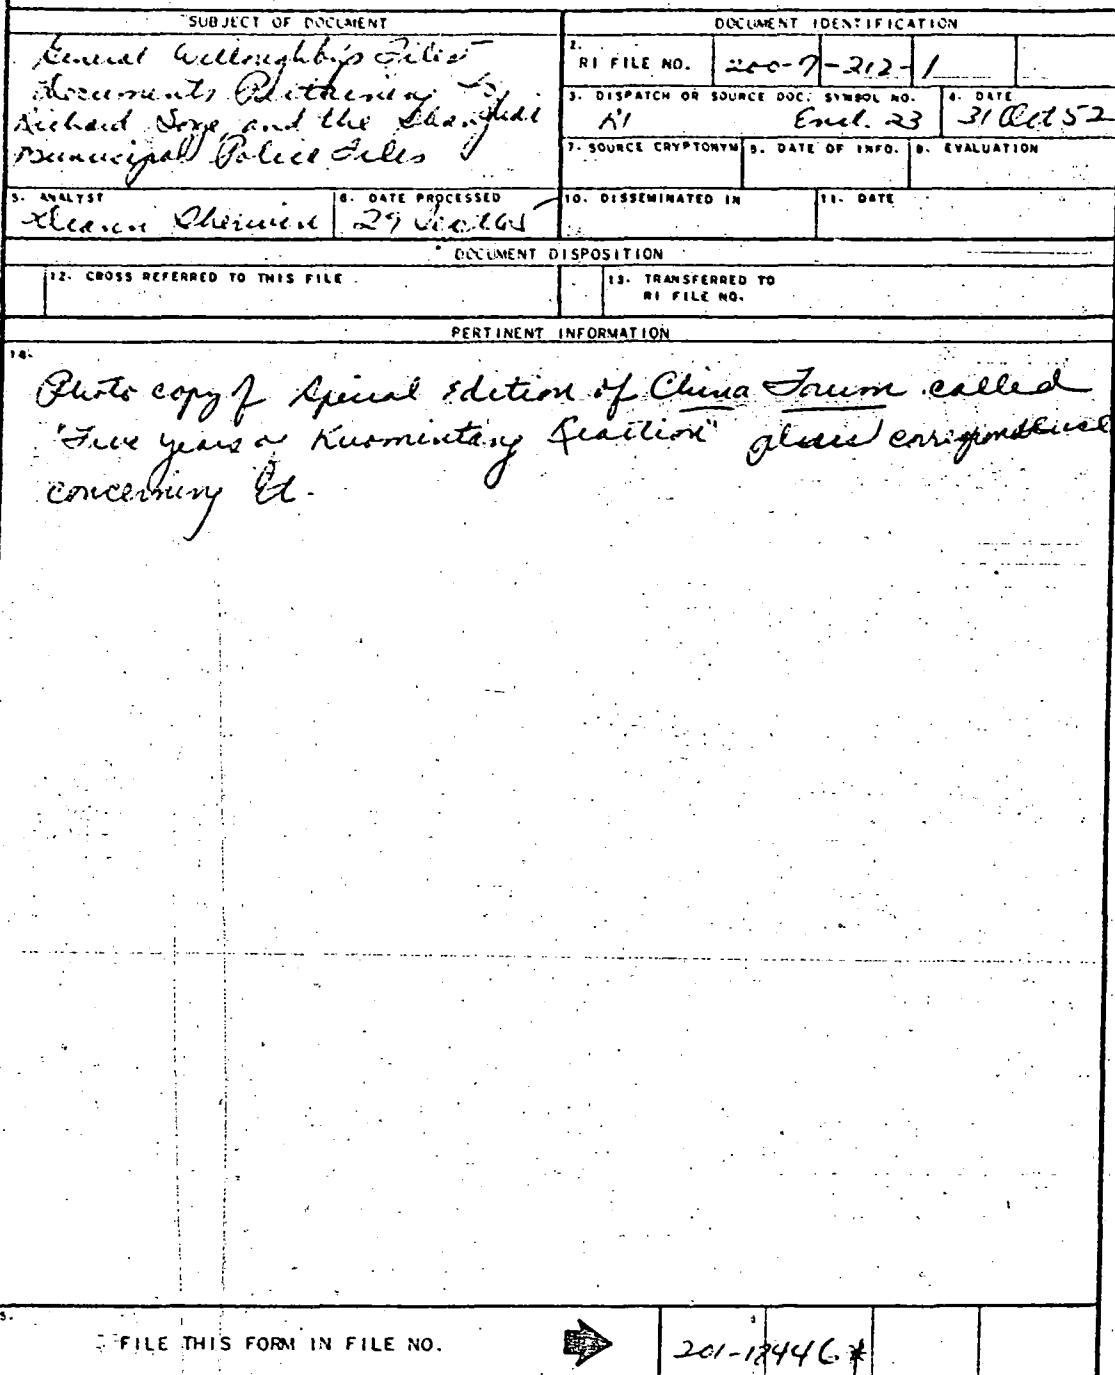 SUBJECT OF DOCUMENT
General Willoughby's Files
Documents Pertaining to
Richard Sorge and the Shanghai
Municipal Police Files
DOCUMENT IDENTIFICATION
2.
RI FILE NO. 200-7-212-1
3. DISPATCH OR SOURCE DOC. SYMBOL NO.
Encl. 23
4. DATE
31 Oct 52
7. SOURCE CRYPTONYM
8. DATE OF INFO.
9. EVALUATION
5. ANALYST
Sherwin
6. DATE PROCESSED
29
10. DISSEMINATED IN
11. DATE
DOCUMENT DISPOSITION
12. CROSS REFERRED TO THIS FILE
13. TRANSFERRED TO
RI FILE NO.
PERTINENT INFORMATION
14.
Photo copy of Special Edition of China Forum called
"Five years of Kuomintang Reaction" plus correspondence
concerning it.
FILE THIS FORM IN FILE NO.